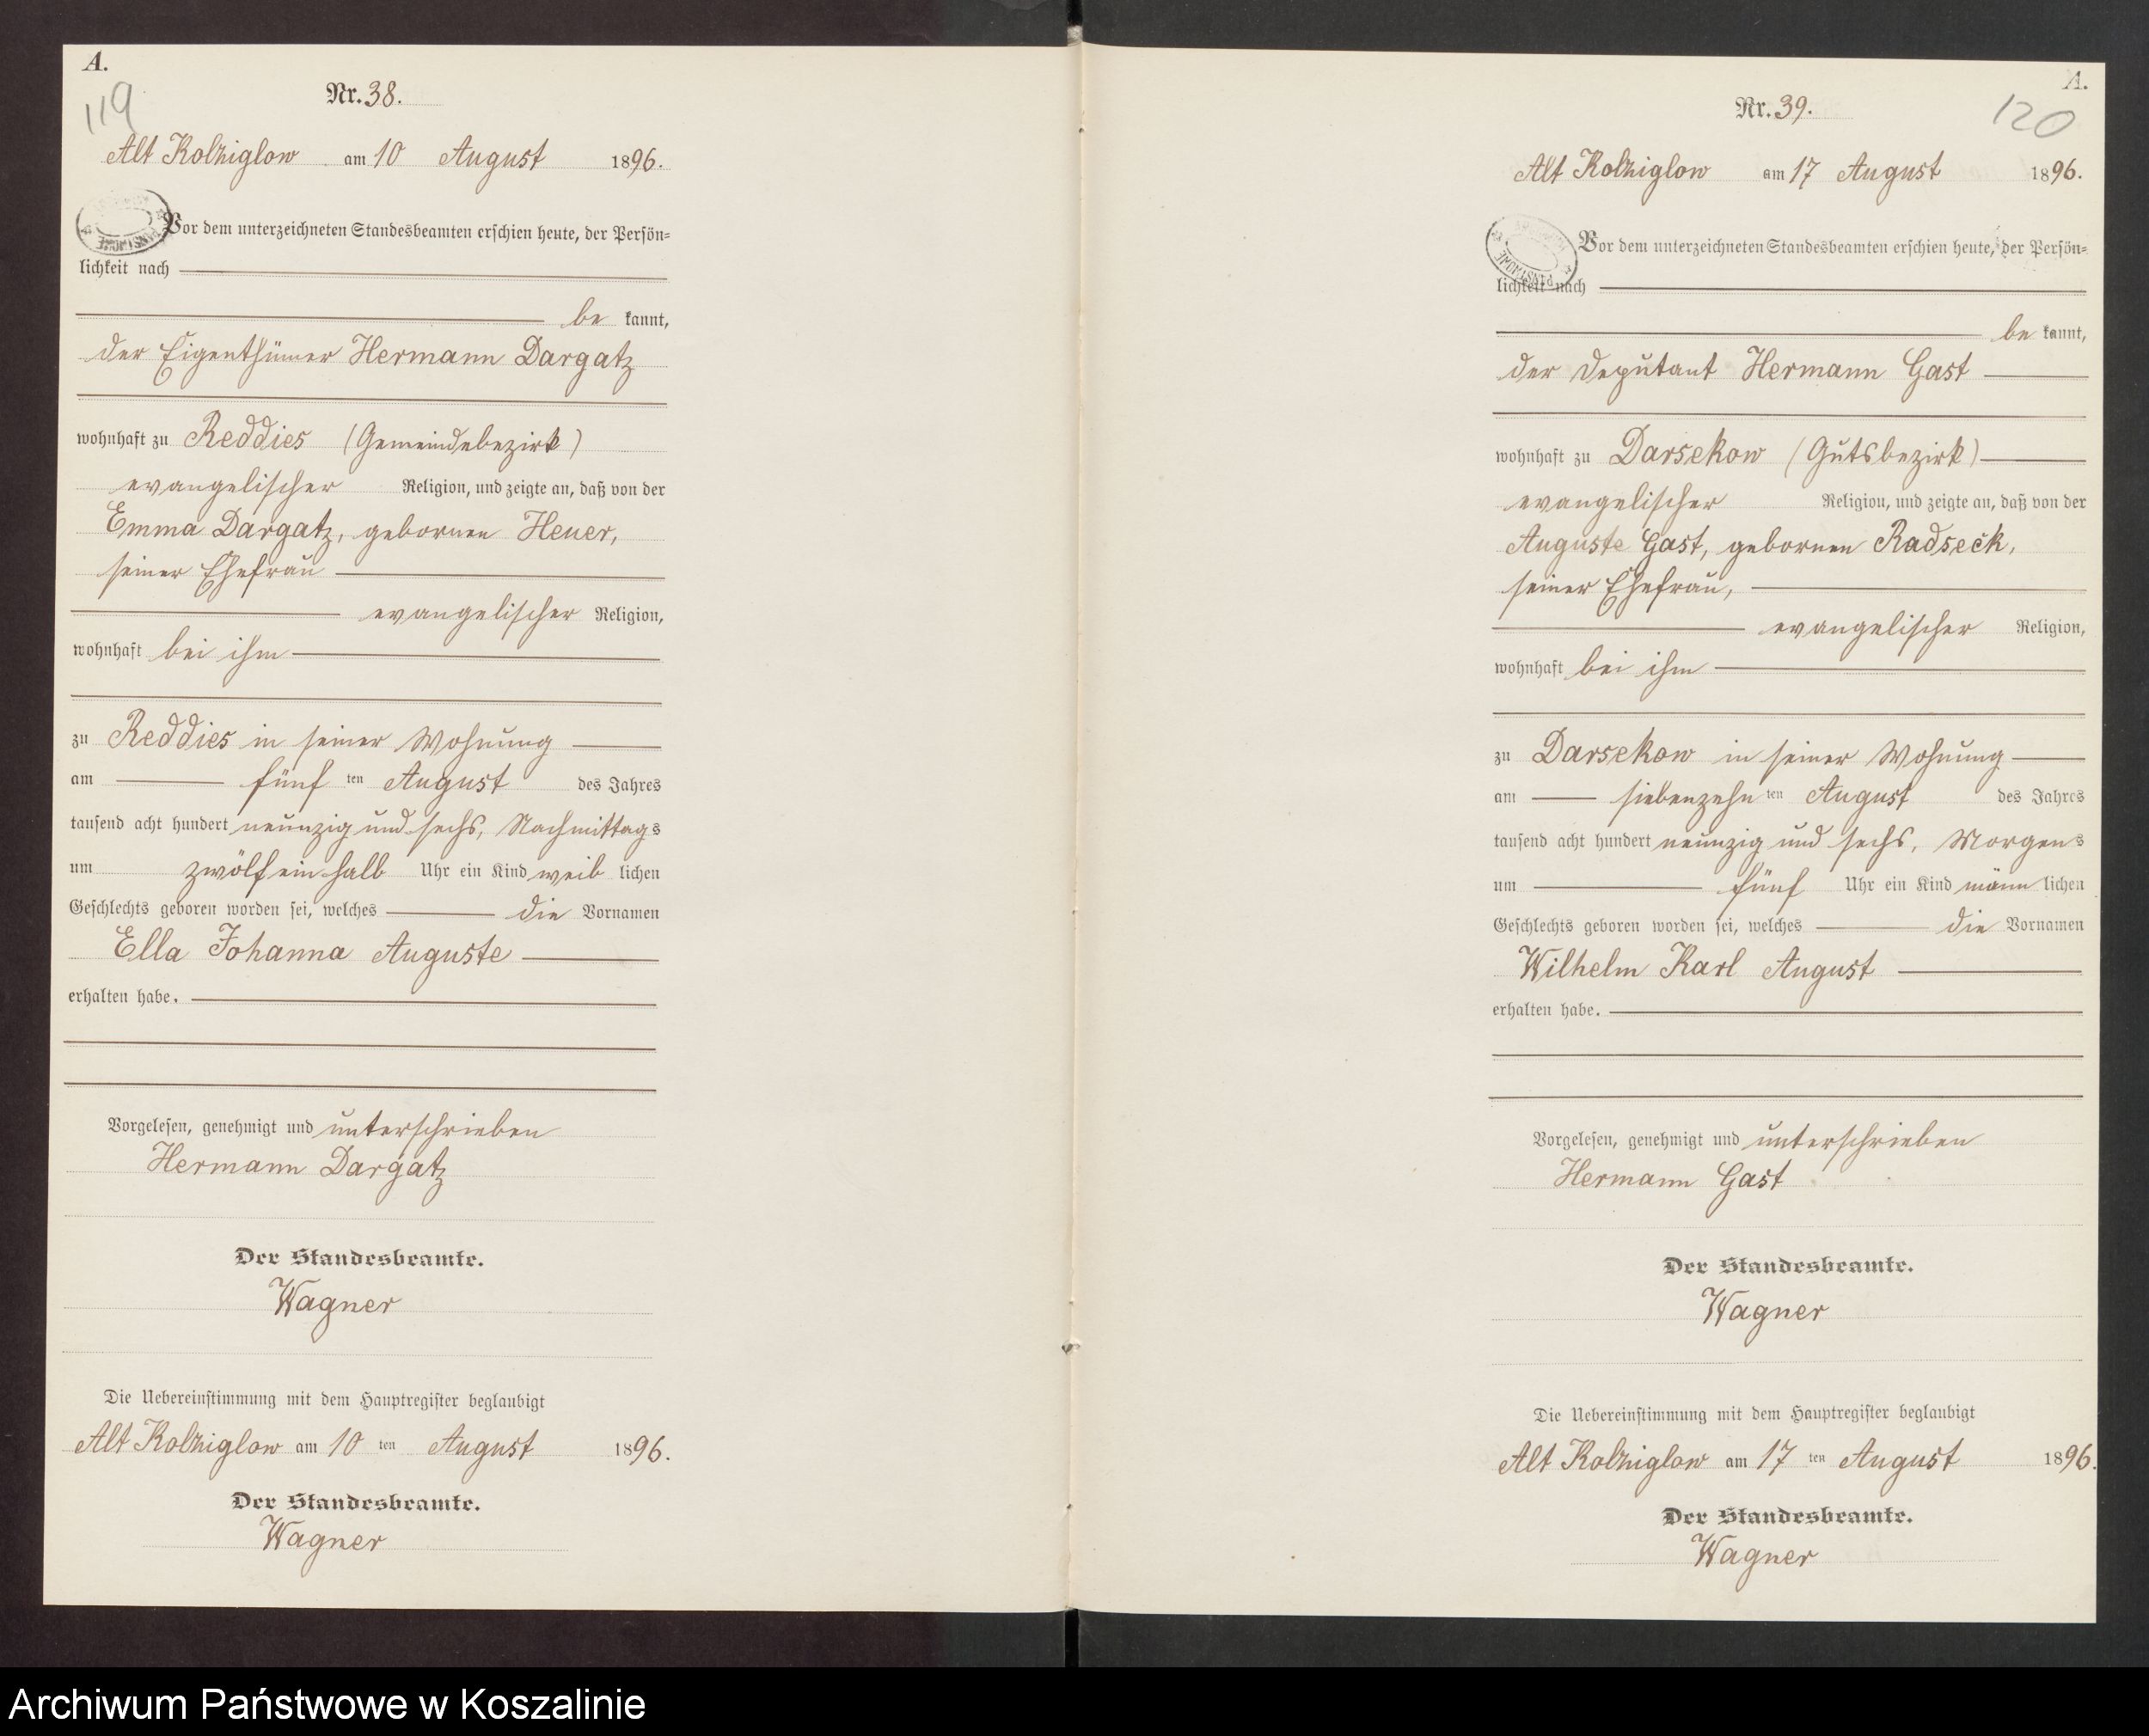 A.
119
Nr. 38.
Alt Kolziglow am 10 August 1896.
Vor dem unterzeichneten Standesbeamten erschien heute, der Persön=
lichkeit nach
be kannt,
der Eigenthümer Hermann Dargatz
wohnhaft zu Reddies (Gemeindebezirk)
evangelischer Religion, und zeigte an, daß von der
Emma Dargatz, gebornen Heuer,
seiner Ehefrau
evangelischer Religion,
wohnhaft bei ihm
zu Reddies in seiner Wohnung
am fünf ten August des Jahres
tausend acht hundert neunzig und sechs, Nachmittags
um zwölfeinhalb Uhr ein Kind weib lichen
Geschlechts geboren worden sei, welches die Vornamen
Ella Johanna Auguste
erhalten habe.
Vorgelesen, genehmigt und unterschrieben
Hermann Dargatz
Der Standesbeamte.
Wagner
Die Uebereinstimmung mit dem Hauptregister beglaubigt
Alt Kolziglow am 10 ten August 1896.
Der Standesbeamte.
Wagner
A.
120
Nr. 39.
Alt Kolziglow am 17 August 1896.
Vor dem unterzeichneten Standesbeamten erschien heute, der Persön=
lichkeit nach
be kannt,
der Deputant Hermann Gast
wohnhaft zu Darsekow (Gutsbezirk)
evangelischer Religion, und zeigte an, daß von der
Auguste Gast, gebornen Radseck,
seiner Ehefrau,
evangelischer Religion,
wohnhaft bei ihm
zu Darsekow in seiner Wohnung
am siebenzehn ten August des Jahres
tausend acht hundert neunzig und sechs, Morgens
um fünf Uhr ein Kind männ lichen
Geschlechts geboren worden sei, welches die Vornamen
Wilhelm Karl August
erhalten habe.
Vorgelesen, genehmigt und unterschrieben
Hermann Gast
Der Standesbeamte.
Wagner
Die Uebereinstimmung mit dem Hauptregister beglaubigt
Alt Kolziglow am 17 ten August 1896.
Der Standesbeamte.
Wagner
Archiwum Państwowe w Koszalinie